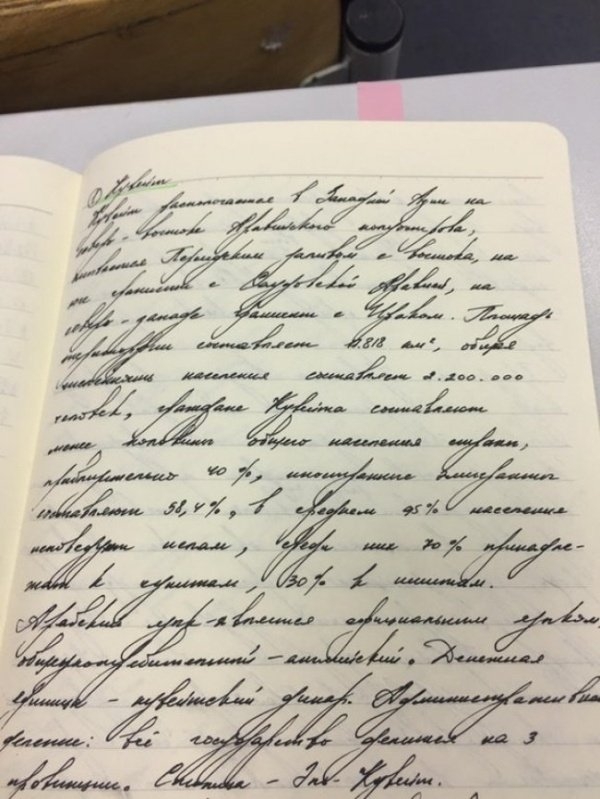 ① Кувейт
Кувейт расположен в Западной Азии на
северо-востоке Аравийского полуострова,
омывается Персидским заливом с востока, на
юге граничит с Саудовской Аравией, на
северо-западе граничит с Ираком. Площадь
территории составляет 17.818 км², общая
численность населения составляет 2.200.000
человек, граждане Кувейта составляют
менее половины общего населения страны,
приблизительно 40%, иностранные эмигранты
составляют 58,4%, в среднем 95% населения
исповедуют ислам, среди них 70% принадле-
жат к суннитам, 30% к шиитам.
Арабский язык является официальным языком,
общеупотребительный - английский. Денежная
единица - кувейтский динар. Административное
деление: всё государство делится на 3
провинции. Столица - Эль-Кувейт.